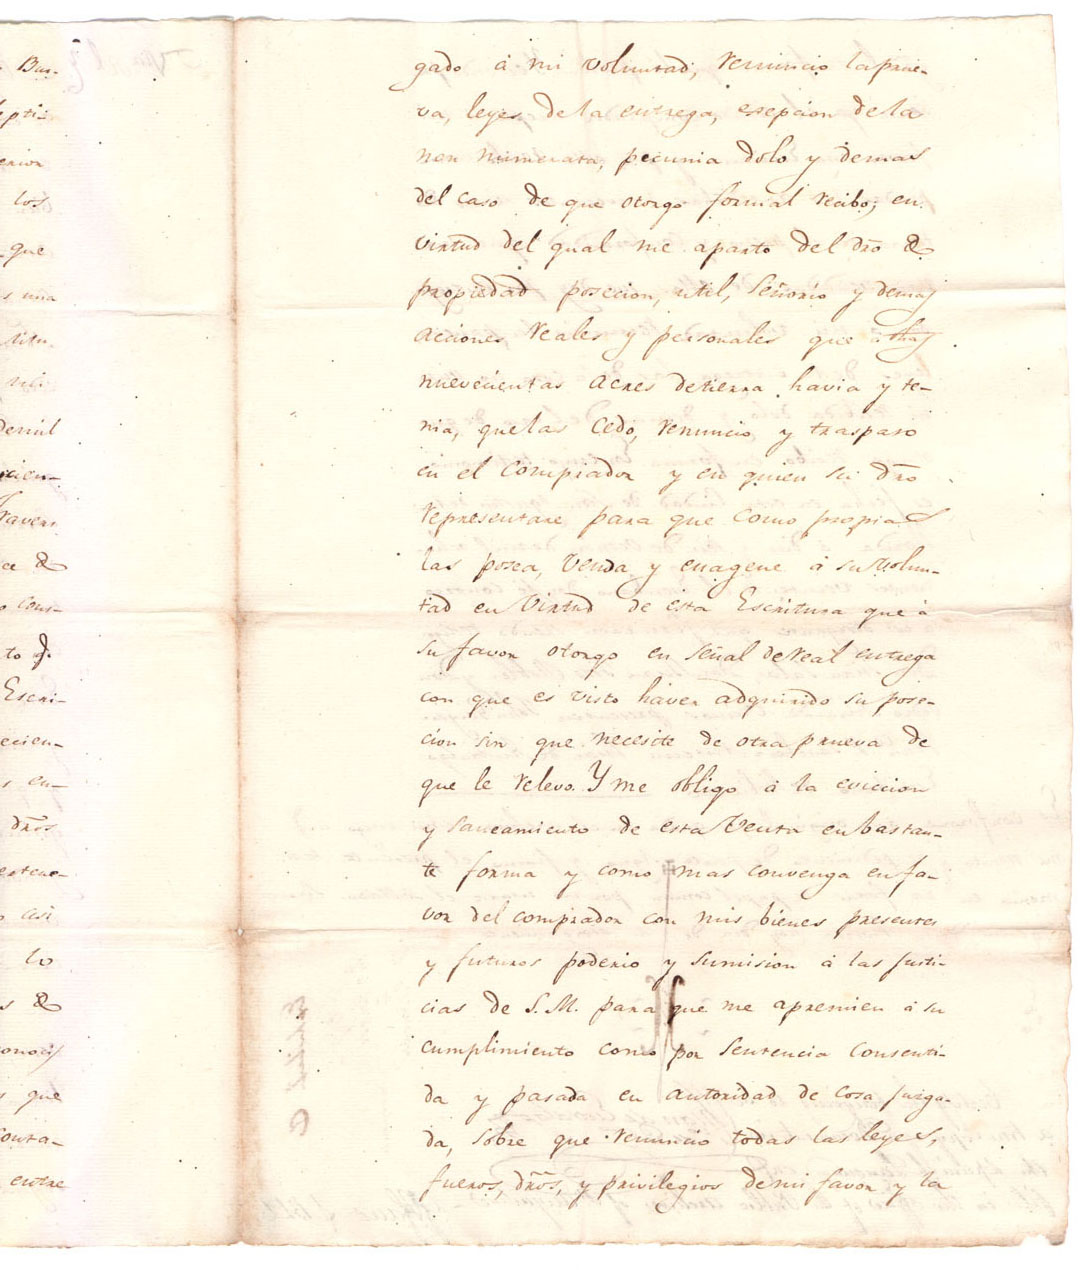 Bue-
epti-
erior
los
que
s una
situ-
mil
cien-
favor
ce de
cons-
to
Escri-
ecien-
s en-
dr̃os
estene-
asi
lo
s de
conoci
s que
conta-
entre
gado á mi voluntad, renuncio la prue-
va, leyes de la entrega, esepcion de la
non numerata, pecunia dolo y demas
del caso de que otorgo formal recibo; en
virtud del qual me aparto del dr̃o de
propiedad posecion, util, Señorio y demas
acciones, Reales y personales que á dhas
nuevecientas acres de tierra havia y te-
nia, que las Cedo, renuncio y traspaso
en el Comprador y en quien su dr̃o
representare para que como propias
las posea, Venda y enagene á su volun-
tad en Virtud de esta Escritura que á
su favor otorgo en señal de Real entrega
con que es visto haver adquirido su pose-
cion sin que necesite de otra prueva de
que le relevo. Y me obligo á la eviccion
y saneamiento de esta Venta en bastan-
te forma y como mas convenga en fa-
vor del comprador con mis bienes presentes
y futuros poderio y sumision á las justi-
cias de S. M. para que me apremien á su
cumplimiento como por Sentencia Consenti-
da y pasada en autoridad de cosa juzga-
da, sobre que renuncio todas las leyes,
fueros, dr̃os, y privilegios de mi favor y la